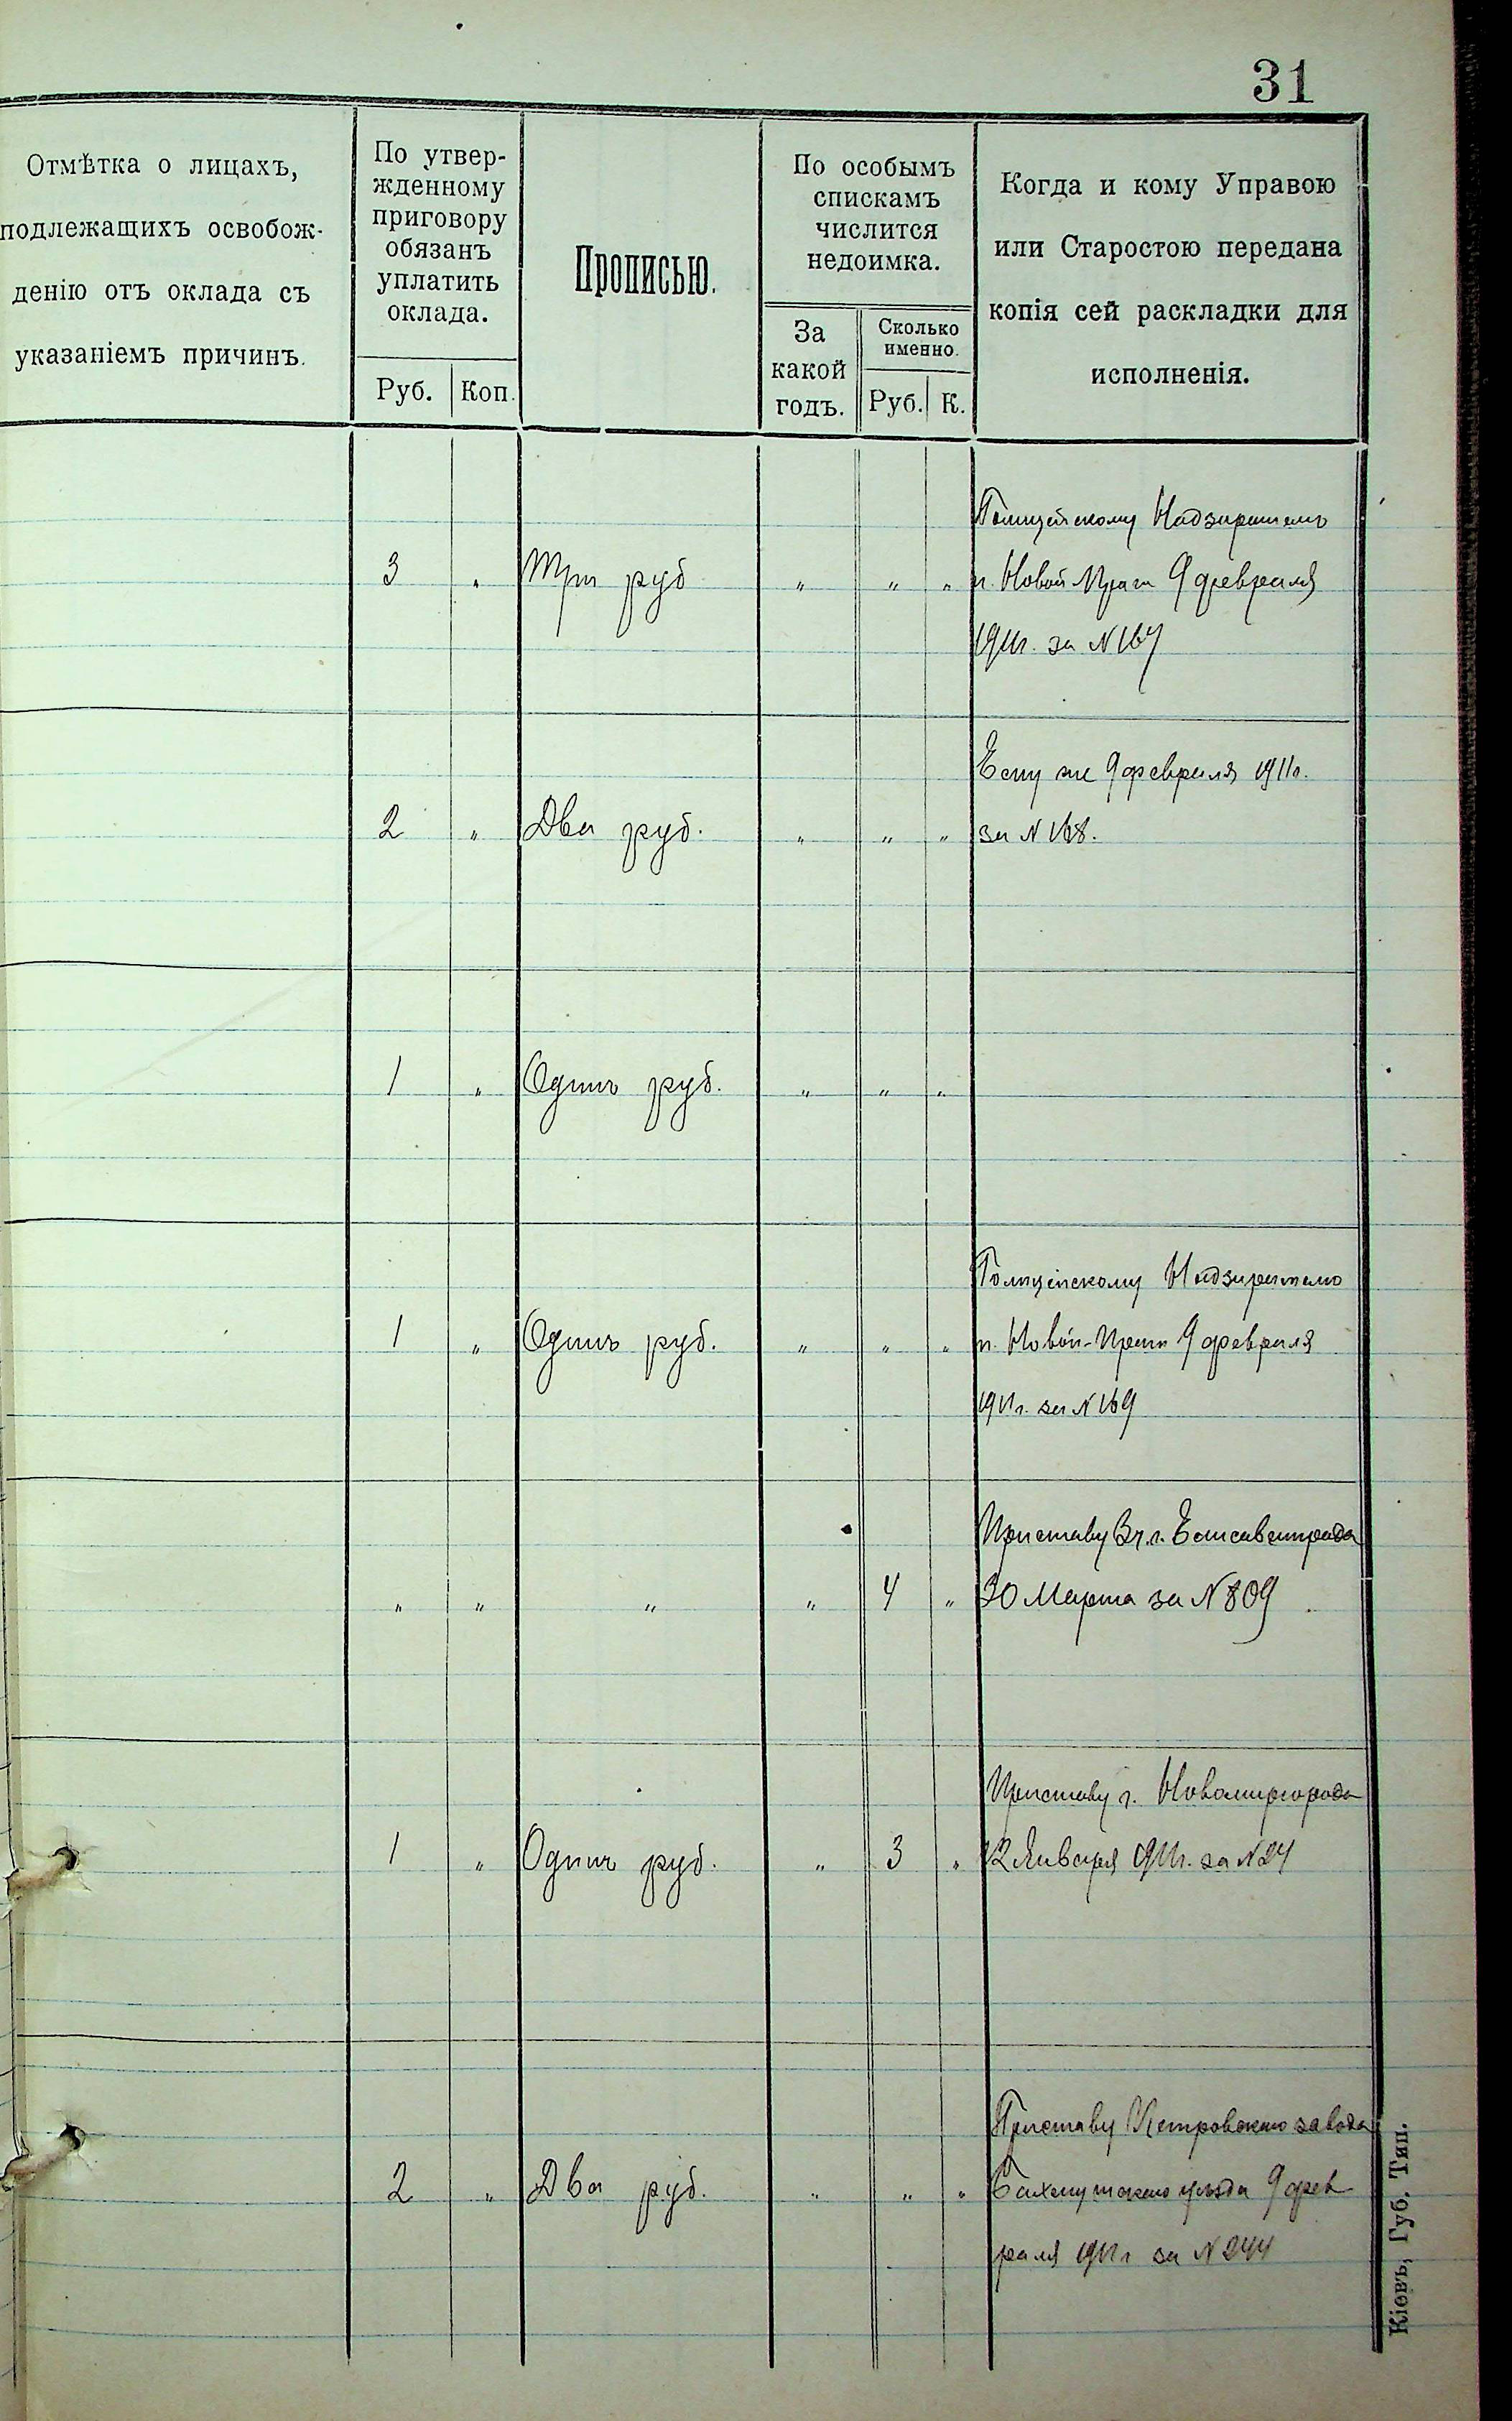 31
Отмѣтка о лицахъ,
подлежащихъ освобож-
денію отъ оклада съ
указаніемъ причинъ.
По утвер-
жденному
приговору
обязанъ
уплатить
оклада.
Руб. Коп.
Прописью.
По особымъ
спискамъ
числится
недоимка.
За
какой
годъ.
Сколько
именно.
Руб. К.
Когда и кому Управою
или Старостою передана
копія сей раскладки для
исполненія.
Полицейскому Надзирателю
3 „ Три руб „ „ „ п. Новой Праги 9 февраля
1911г. за N 167
Ему же 9 февраля 1911г.
2 „ Два руб. „ „ „ за N 168.
1 „ Одинъ руб. „ „ „
Полицейскому Надзирателю
1 „ Одинъ руб. „ „ „ п. Новой-Праги 9 февраля
1911г. за N 169
Приставу 3 ч. г. Елисаветграда
„ „ „ „ 4 „ 30 Марта за N 809
Приставу г. Новомиргорода
1 „ Одинъ руб. „ 3 „ 12 Января 1911г. за N 24
Приставу Петровского завода
2 „ Два руб. „ „ „ Бахмутского уѣзда 9 фев
раля 1911г за N 244
Кіевъ, Губ. Тип.